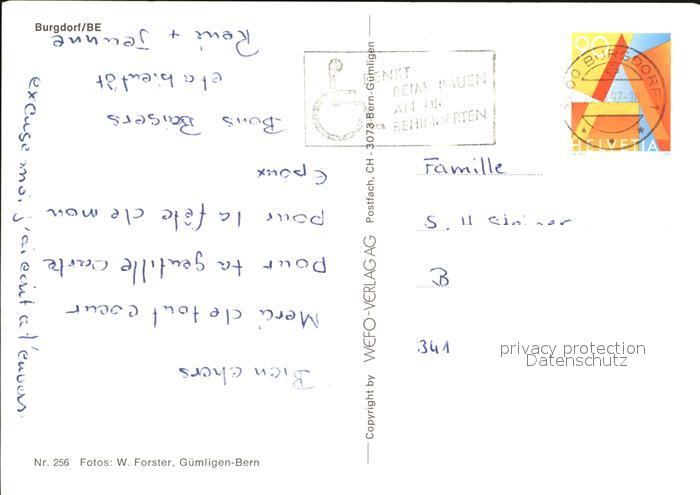 Burgdorf/BE
Bien chers
Merci de tout coeur
pour ta gentille carte
pour la fête de mon
époux
Bons Baisers
et a bientôt
René + Jeanne
excuse moi, j'ai écrit a l'envers.
Nr. 256 Fotos: W. Forster, Gümligen-Bern
Copyright by WEFO-VERLAG AG Postfach, CH - 3073 Bern-Gümligen
DENKT
BEIM BAUEN
AN DIE
BEHINDERTEN
90
BURGDORF 1
HELVETIA
Famille
S. H
B
341
privacy protection
Datenschutz